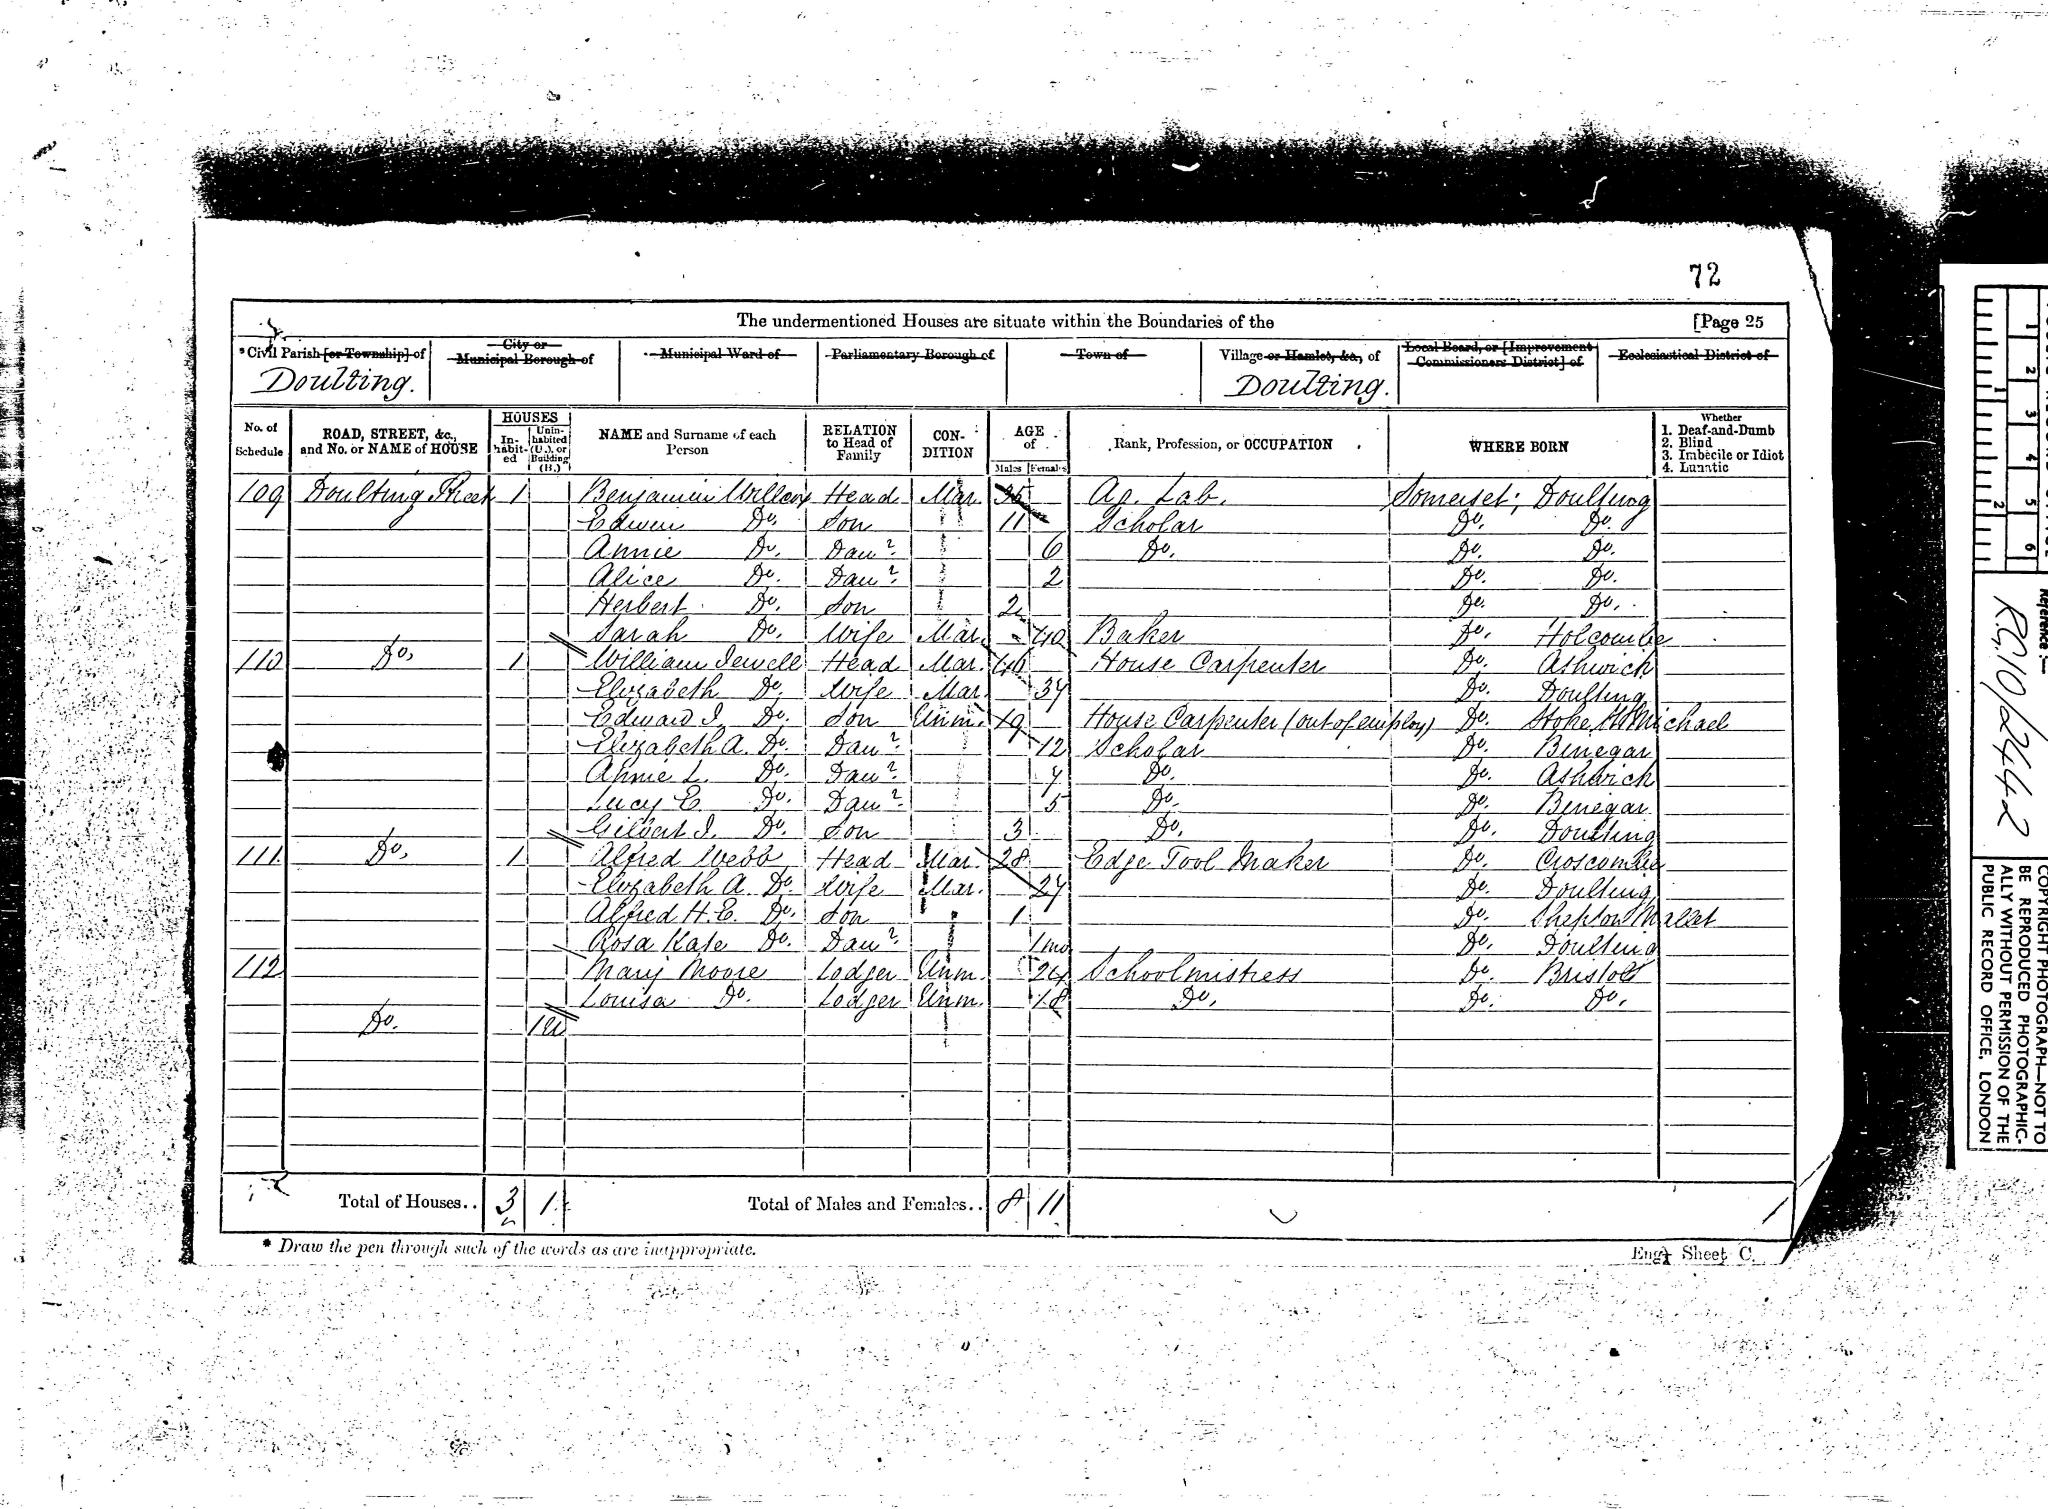 72
The undermentioned Houses are situate within the Boundaries of the [Page 25
*Civil Parish [or Township] of City or Municipal Borough of Municipal Ward of Parliamentary Borough of Town of Village or Hamlet, &c., of Local Board, or [Improvement Commissioners District] of Ecclesiastical District of
Doulting. Doulting.
No. of Schedule ROAD, STREET, &c., and No. or NAME of HOUSE HOUSES In-habit-ed Unin-habited (U.), or Building (B.) NAME and Surname of each Person RELATION to Head of Family CON-DITION AGE of Males Females Rank, Profession, or OCCUPATION WHERE BORN Whether 1. Deaf-and-Dumb 2. Blind 3. Imbecile or Idiot 4. Lunatic
109 Doulting Street 1 Benjamin Willcox Head Mar. 35 Ag. Lab. Somerset; Doulting
Edwin Do. Son 11 Scholar Do. Do.
Annie Do. Daur. 6 Do. Do. Do.
Alice Do. Daur. 2 Do. Do.
Herbert Do. Son 2 Do. Do.
Sarah Do. Wife Mar. 40 Baker Do. Holcombe
110 Do. 1 William Jewell Head Mar. 46 House Carpenter Do. Ashwick
Elizabeth Do. Wife Mar. 37 Do. Doulting
Edward J. Do. Son Unm. 19 House Carpenter (out of employ) Do. Stoke St Michael
Elizabeth A. Do. Daur. 12 Scholar Do. Binegar
Annie L. Do. Daur. 7 Do. Do. Ashwick
Lucy E. Do. Daur. 5 Do. Do. Binegar
Gilbert J. Do. Son 3 Do. Do. Doulting
111. Do. 1 Alfred Webb Head Mar. 28 Edge Tool Maker Do. Croscombe
Elizabeth A. Do. Wife Mar. 27 Do. Doulting
Alfred H. E. Do. Son 1 Do. Shepton Mallet
Rosa Kate Do. Daur. 1 mo Do. Doulting
112 Mary Moore Lodger Unm. 24 Schoolmistress Do. Bristol
Louisa Do. Lodger Unm. 18 Do. Do. Do.
Do. 1U
Total of Houses.. 3 1 Total of Males and Females.. 8 11
* Draw the pen through such of the words as are inappropriate.
Eng. Sheet C.
R.G. 10/2442
Reference :—
COPYRIGHT PHOTOGRAPH—NOT TO
BE REPRODUCED PHOTOGRAPHIC-
ALLY WITHOUT PERMISSION OF THE
PUBLIC RECORD OFFICE, LONDON
1 2 3 4 5 6
1 2